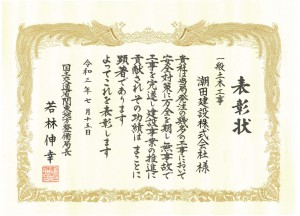 表彰状
一般土木工事
潮田建設株式会社様
貴社は当局発注の幾多の工事において
安全対策に万全を期し無事故で
工事を完遂し建設事業の推進に
貢献されその功績はまことに
顕著であります
よってこれを表彰します
令和二年七月十五日
国土交通省関東地方整備局長
若林伸幸